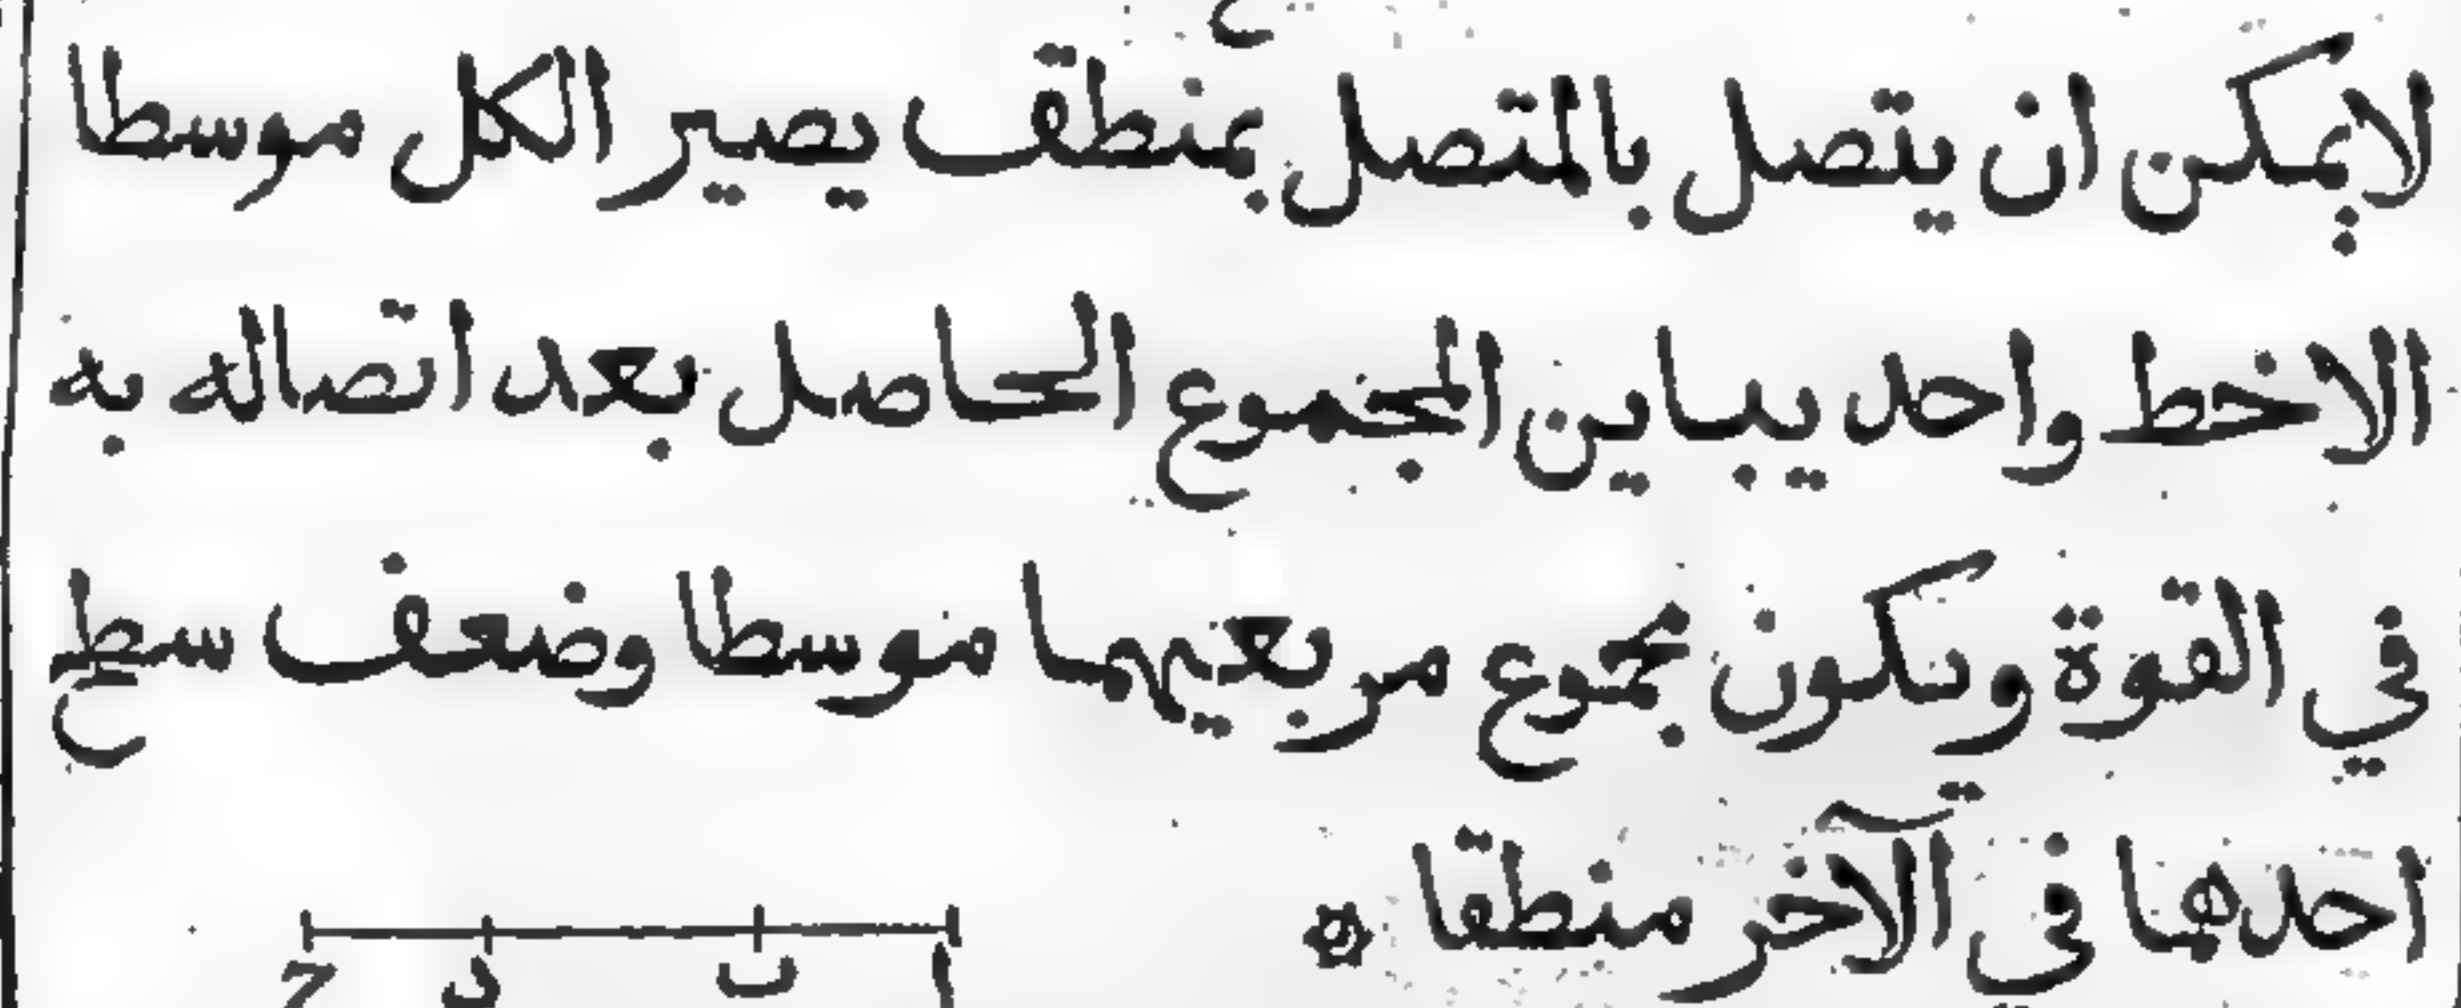 لا يمكن ان يتصل بالمتصل بمنطق يصير الكل موسطا
الا خط واحد يباين المجموع الحاصل بعد اتصاله به
في القوة ويكون مجموع مربعيهما موسطا وضعف سطح
احدهما في الآخر منطقا
ا ب د ح